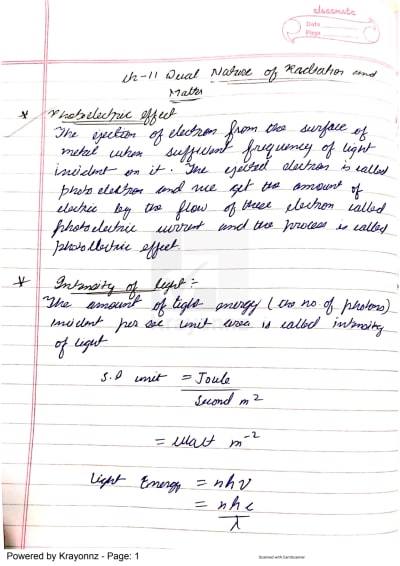 classmate
Date
Page
ch-11 Dual Nature of Radiation and
Matter
* Photoelectric effect
The ejection of electron from the surface of
metal when sufficient frequency of light
incident on it. The ejected electron is called
photo electron and we get the amount of
electric by the flow of these electron called
photoelectric current and the process is called
photoelectric effect
* Intensity of light :-
The amount of light energy (the no. of photons)
incident per sec unit area is called intensity
of light
S.I unit = Joule
second m²
= Watt m⁻²
Light Energy = nhν
= nhc
λ
Powered by Krayonnz - Page: 1
Scanned with CamScanner